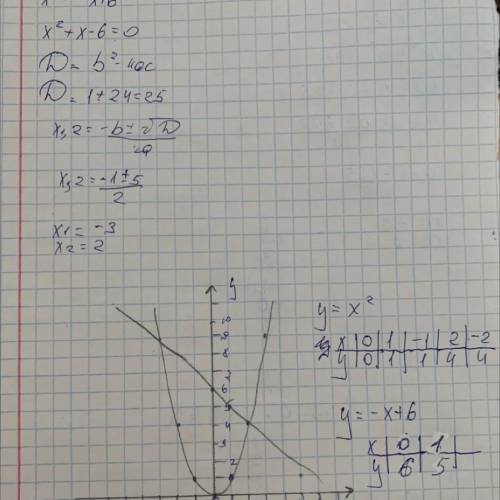 x² + x - 6 = 0
D = b² - 4ac
D = 1 + 24 = 25
x1,2 = (-b ± √D)/2a
x1,2 = (-1 ± 5)/2
x1 = -3
x2 = 2
y
y = x²
x 0 1 -1 2 -2
y 0 1 1 4 4
y = -x + 6
x 0 1
y 6 5